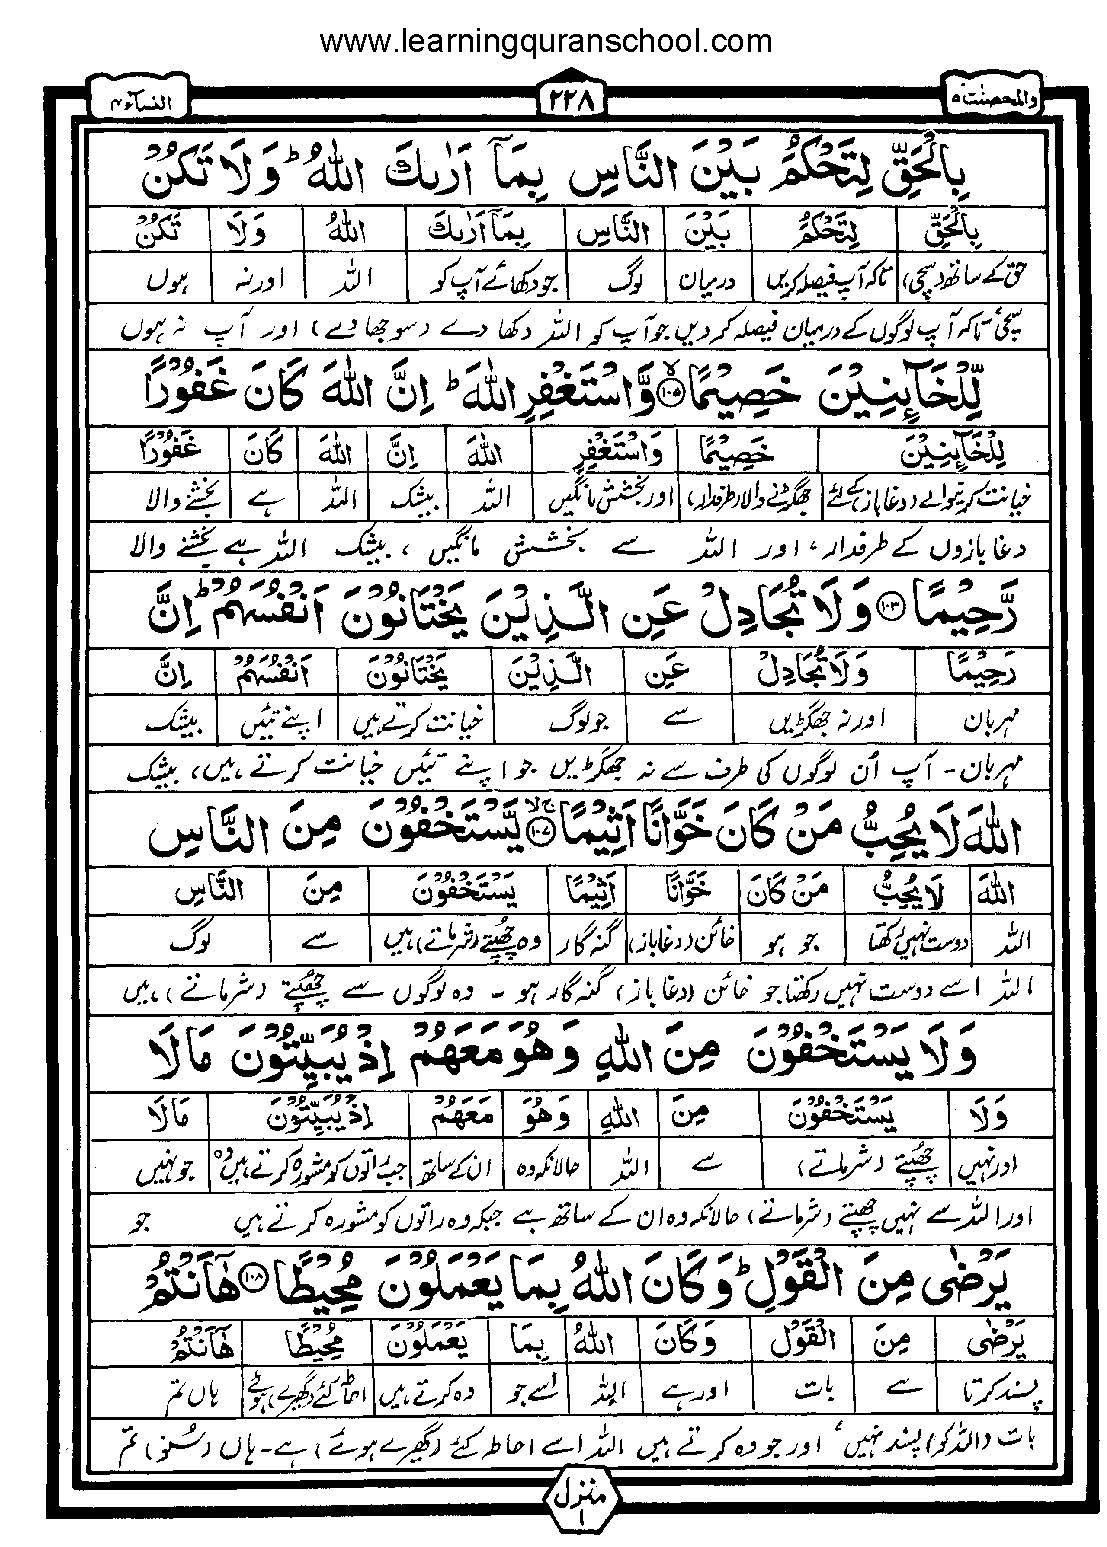 www.learningquranschool.com
والمحصنت ۵ ۲۲۸ النسآء ۴
بِالْحَقِّ لِتَحْكُمَ بَيْنَ النَّاسِ بِمَآ اَرٰىكَ اللّٰهُ ؕ وَلَا تَكُنْ
بِالْحَقِّ لِتَحْكُمَ بَيْنَ النَّاسِ بِمَآ اَرٰىكَ اللّٰهُ وَلَا تَكُنْ
حق کے ساتھ (سچی) تاکہ آپ فیصلہ کریں درمیان لوگ جو دکھائے آپ کو اللہ اور نہ ہوں
سچی، تاکہ آپ لوگوں کے درمیان فیصلہ کر دیں جو آپ کو اللہ دکھا دے (سوجھا دے) اور آپ نہ ہوں
لِّلْخَآئِنِيْنَ خَصِيْمًا ۙ﴿۱۰۵﴾ وَّاسْتَغْفِرِ اللّٰهَ ؕ اِنَّ اللّٰهَ كَانَ غَفُوْرًا
لِلْخَآئِنِيْنَ خَصِيْمًا وَاسْتَغْفِرِ اللّٰهَ اِنَّ اللّٰهَ كَانَ غَفُوْرًا
خیانت کرنیوالے (دغا باز) کے لئے جھگڑنے والا (طرفدار) اور بخشش مانگیں اللہ بیشک اللہ ہے بخشنے والا
دغا بازوں کے طرفدار، اور اللہ سے بخشش مانگیں، بیشک اللہ ہے بخشنے والا
رَّحِيْمًا ﴿۱۰۶﴾ وَلَا تُجَادِلْ عَنِ الَّذِيْنَ يَخْتَانُوْنَ اَنْفُسَهُمْ ؕ اِنَّ
رَحِيْمًا وَلَا تُجَادِلْ عَنِ الَّذِيْنَ يَخْتَانُوْنَ اَنْفُسَهُمْ اِنَّ
مہربان اور نہ جھگڑیں سے جو لوگ خیانت کرتے ہیں اپنے تئیں بیشک
مہربان۔ آپ اُن لوگوں کی طرف سے نہ جھگڑیں جو اپنے تئیں خیانت کرتے ہیں، بیشک
اللّٰهَ لَا يُحِبُّ مَنْ كَانَ خَوَّانًا اَثِيْمًا ﴿۱۰۷﴾ يَّسْتَخْفُوْنَ مِنَ النَّاسِ
اللّٰهَ لَا يُحِبُّ مَنْ كَانَ خَوَّانًا اَثِيْمًا يَسْتَخْفُوْنَ مِنَ النَّاسِ
اللہ دوست نہیں رکھتا جو ہو خائن (دغا باز) گنہ گار وہ چھپتے (شرماتے) ہیں سے لوگ
اللہ اسے دوست نہیں رکھتا جو خائن (دغا باز) گنہ گار ہو ۔ وہ لوگوں سے چھپتے (شرماتے) ہیں
وَلَا يَسْتَخْفُوْنَ مِنَ اللّٰهِ وَهُوَ مَعَهُمْ اِذْ يُبَيِّتُوْنَ مَا لَا
وَلَا يَسْتَخْفُوْنَ مِنَ اللّٰهِ وَهُوَ مَعَهُمْ اِذْ يُبَيِّتُوْنَ مَا لَا
اور نہیں چھپتے (شرماتے) سے اللہ حالانکہ وہ ان کے ساتھ جب راتوں کو مشورہ کرتے ہیں وہ جو نہیں
اور اللہ سے نہیں چھپتے (شرماتے) حالانکہ وہ ان کے ساتھ ہے جبکہ وہ راتوں کو مشورہ کرتے ہیں جو
يَرْضٰى مِنَ الْقَوْلِ ؕ وَكَانَ اللّٰهُ بِمَا يَعْمَلُوْنَ مُحِيْطًا ﴿۱۰۸﴾ هٰٓاَنْتُمْ
يَرْضٰى مِنَ الْقَوْلِ وَكَانَ اللّٰهُ بِمَا يَعْمَلُوْنَ مُحِيْطًا هٰٓاَنْتُمْ
پسند کرتا سے بات اور ہے اللہ اسے جو وہ کرتے ہیں احاطہ کئے (گھیرے) ہوئے ہاں تم
بات (اللہ کو) پسند نہیں، اور جو وہ کرتے ہیں اللہ اسے احاطہ کئے (گھیرے ہوئے) ہے۔ ہاں (سنو) تم
منزل ۱